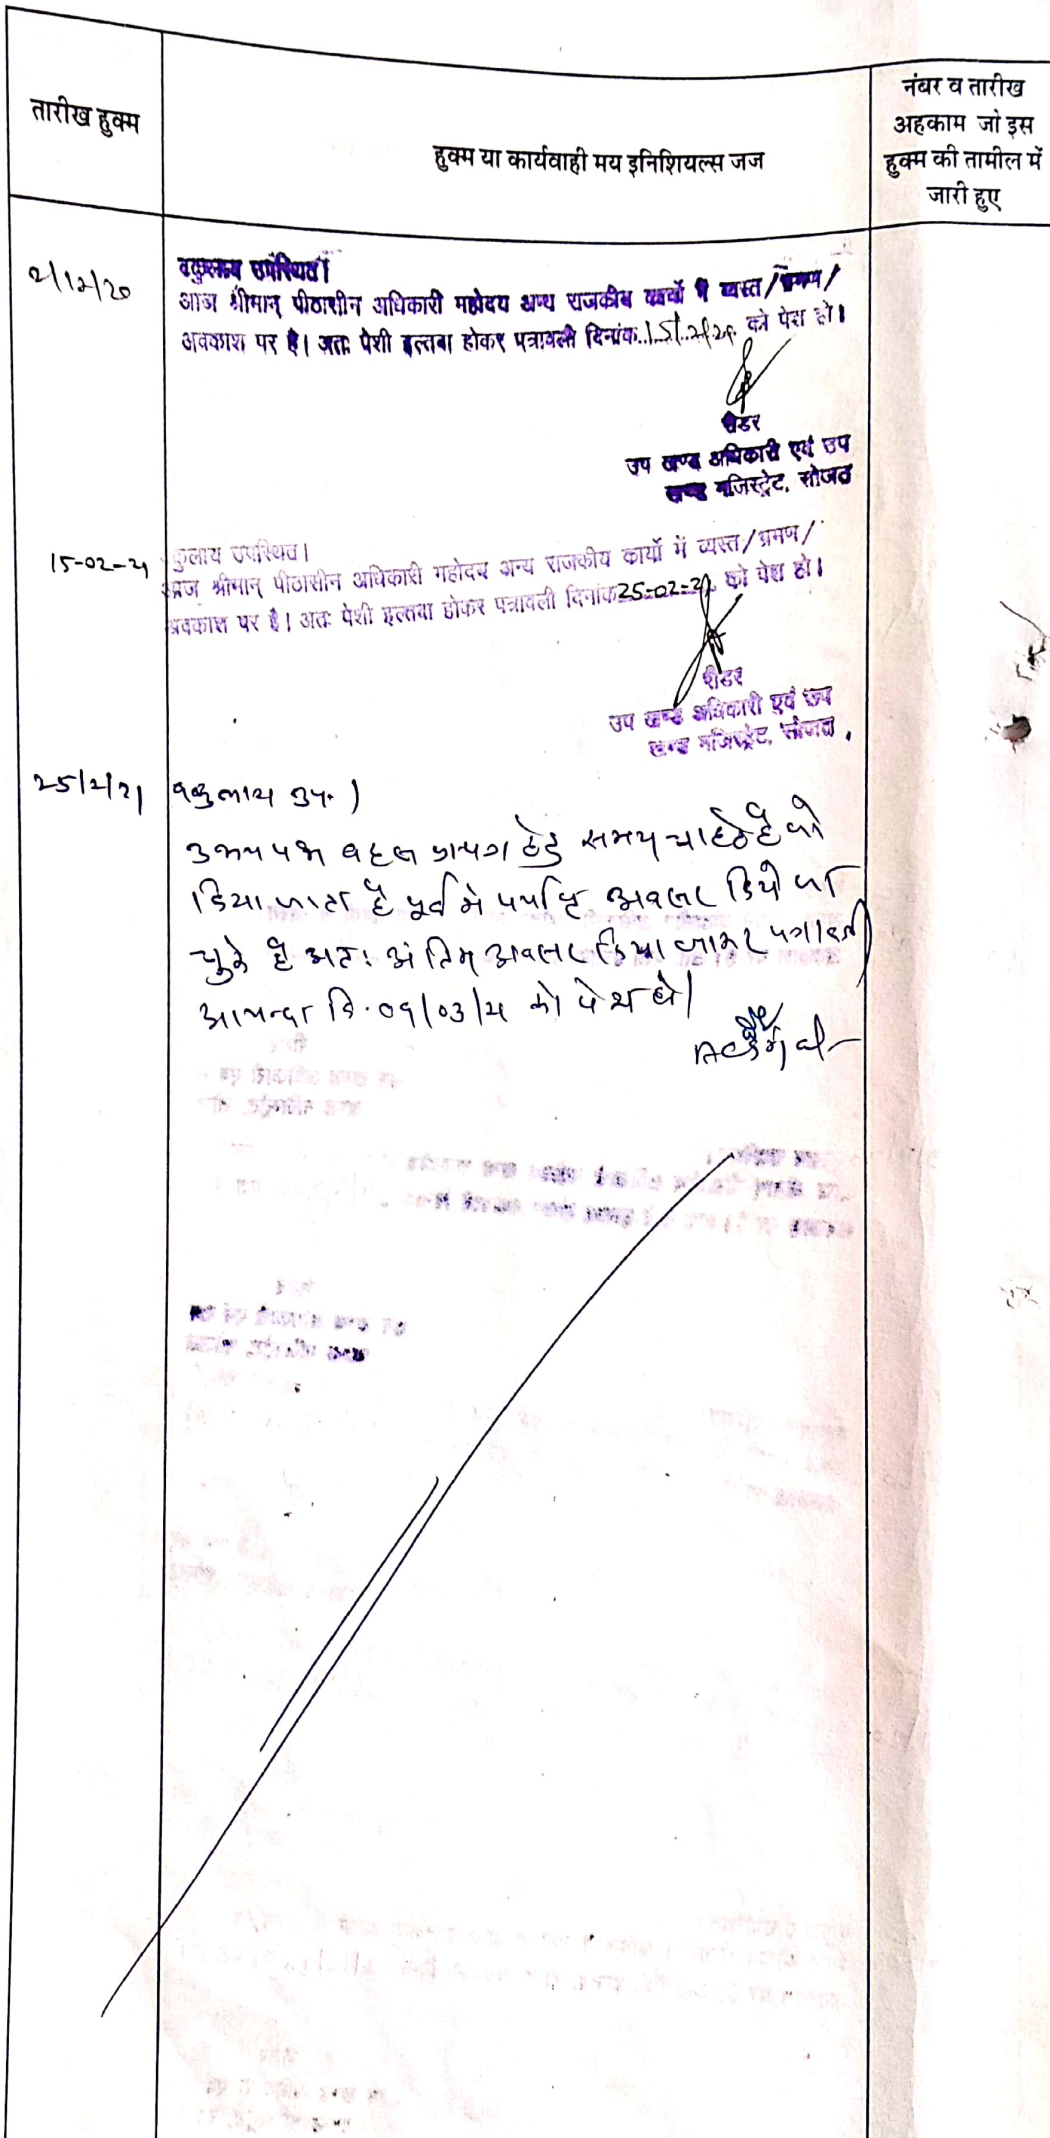 तारीख हुक्म
हुक्म या कार्यवाही मय इनिशियल्स जज
नंबर व तारीख
अहकाम जो इस
हुक्म की तामील में
जारी हुए
2/12/20
वकुलाय उपस्थित।
आज श्रीमान् पीठासीन अधिकारी महोदय अन्य राजकीय कार्यो में व्यस्त/भ्रमण/
अवकाश पर है। अतः पेशी इल्तवा होकर पत्रावली दिनांक..15/..2/21. को पेश हो।
रीडर
उप खण्ड अधिकारी एवं उप
खण्ड मजिस्ट्रेट, सोजत
15-02-21
कुलाय उपस्थित।
आज श्रीमान् पीठासीन अधिकारी महोदय अन्य राजकीय कार्यो में व्यस्त/भ्रमण/
अवकाश पर है। अतः पेशी इल्तवा होकर पत्रावली दिनांक 25-02-21 को पेश हो।
रीडर
उप खण्ड अधिकारी एवं उप
खण्ड मजिस्ट्रेट, सोजत
25/2/21
वकुलाय उप.।
उभय पक्ष बहस हेतु समय चाहते है जो
दिया जाता है पूर्व में पर्याप्त अवसर दिये जा
चुके है अतः अंतिम अवसर दिया जाकर पत्रावली
आयन्दा दि. 09/03/21 को पेश हो।